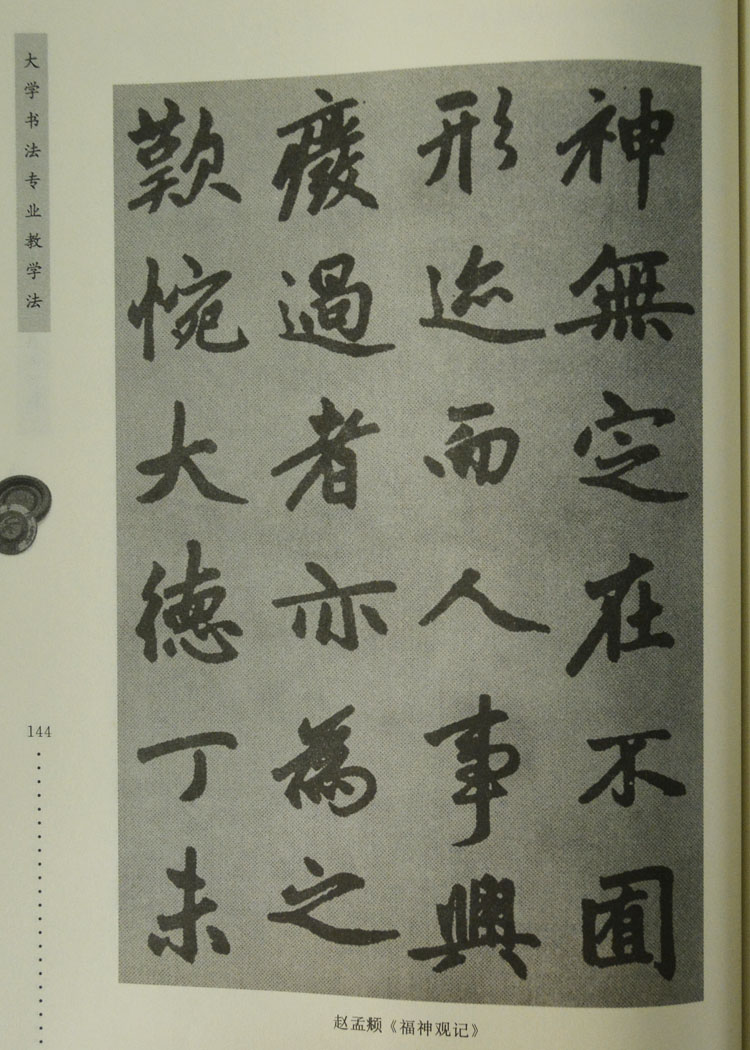 大学书法专业教学法
神無定在不囿
形迹而人事興
廢過者亦為之
歎惋大德丁未
144
赵孟頫《福神观记》